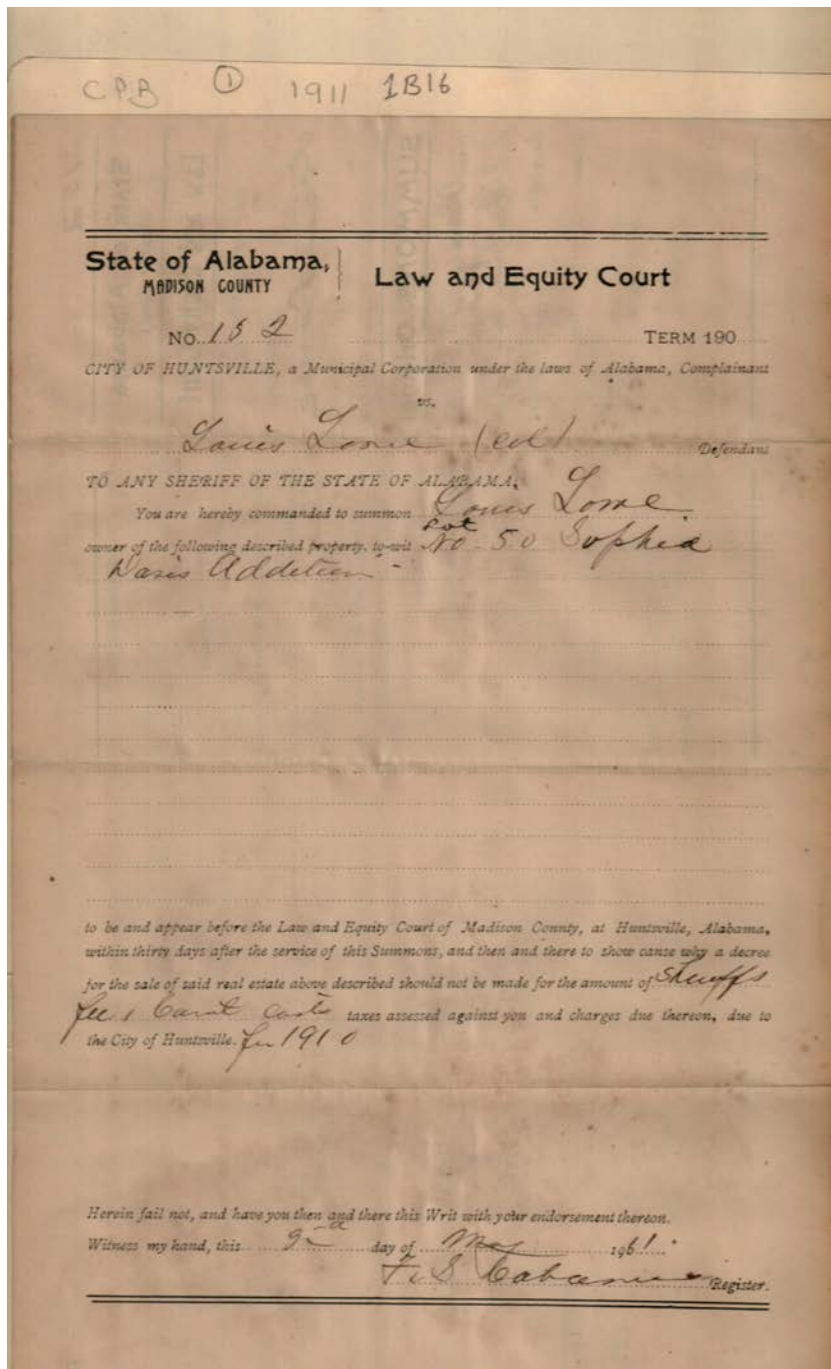 CPB ① 1911 1B16
State of Alabama, Law and Equity Court
MADISON COUNTY
No. 152 TERM 190
CITY OF HUNTSVILLE, a Municipal Corporation under the laws of Alabama, Complainant
vs.
Louis Lowe (col) Defendant
TO ANY SHERIFF OF THE STATE OF ALABAMA,
You are hereby commanded to summon Louis Lowe
owner of the following described property, to-wit Lot No 50 Sophia
Davis Addition
to be and appear before the Law and Equity Court of Madison County, at Huntsville, Alabama,
within thirty days after the service of this Summons, and then and there to show cause why a decree
for the sale of said real estate above described should not be made for the amount of Sheriffs
fee & Court Costs taxes assessed against you and charges due thereon, due to
the City of Huntsville. for 1910
Herein fail not, and have you then and there this Writ with your endorsement thereon.
Witness my hand, this day of May 1911
Register.